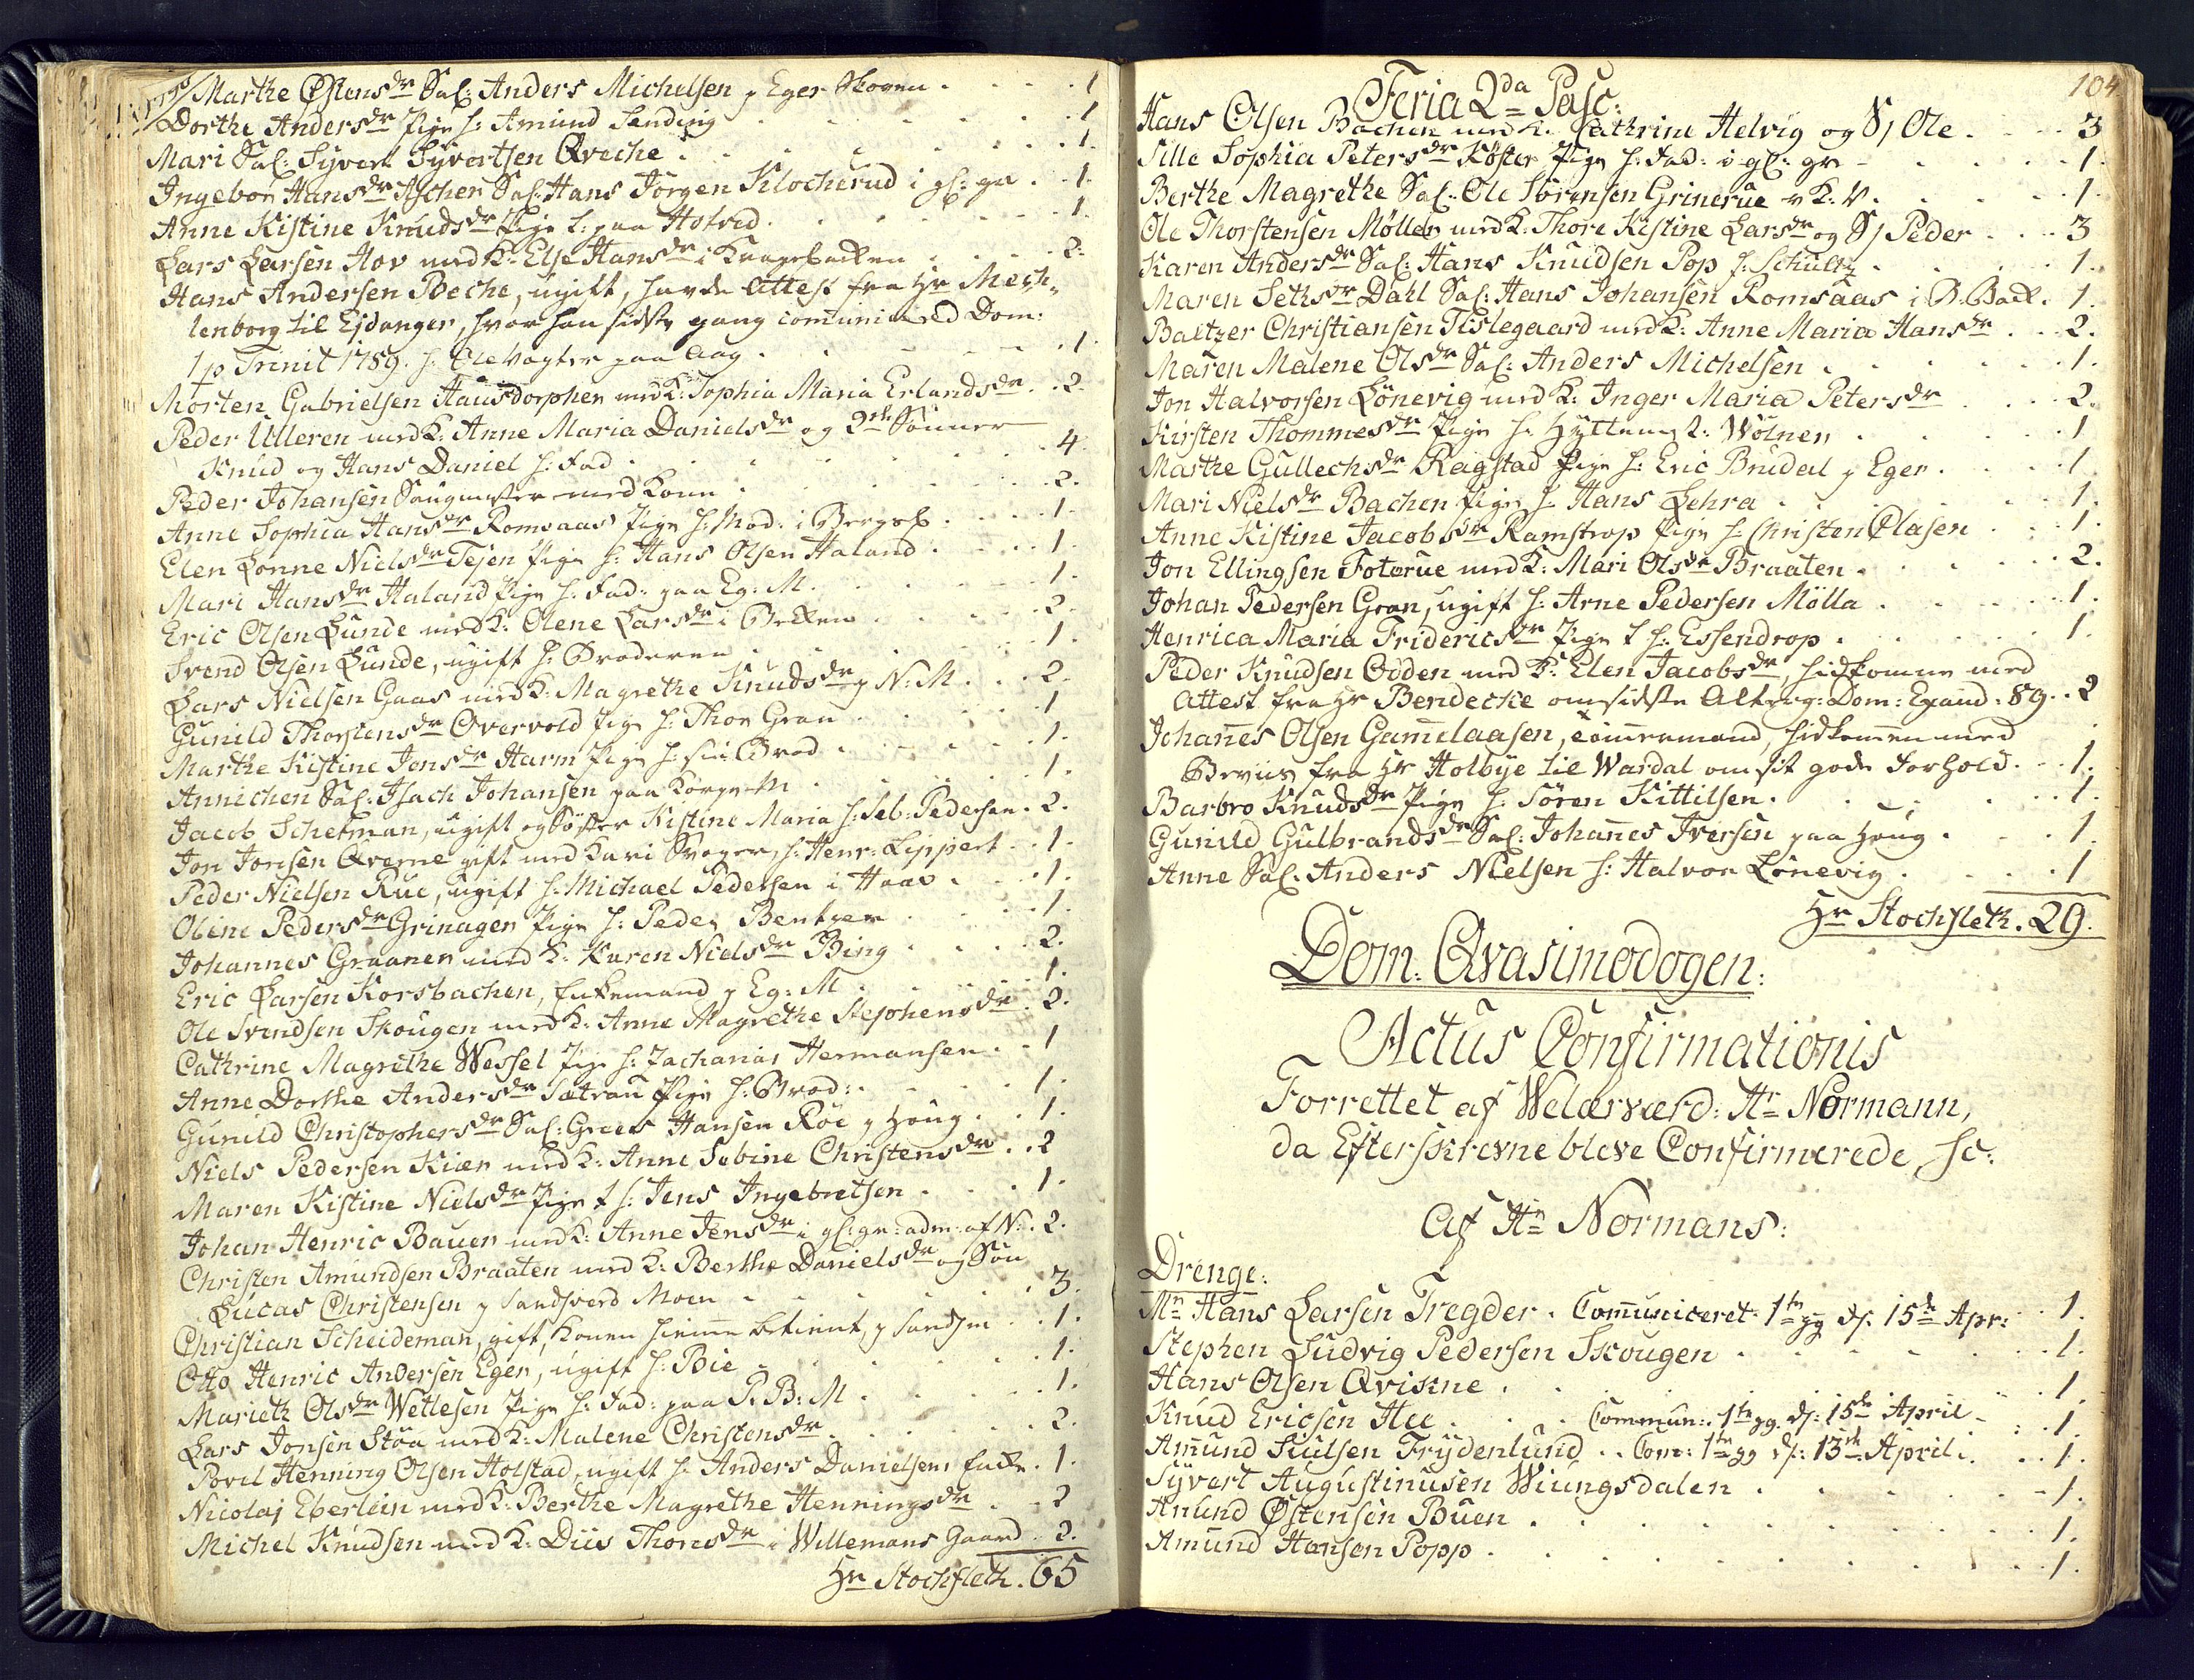 Marthe Østensdr Sal: Anders Michelsen p Eger Skoven . . . . 1
Dorthe Andersdr Pige h: Amund Sanding . . . . . . 1
Mari Sal: Syvert Syvertsen Qveche . . . . . . 1.
Ingebor Hansdr Ascher Sal: Hans Jørgen Klocherud i gl: gr . 1.
Anne Kistine Knudsdr Pige t: paa Hotved . . . . . . 1.
Lars Larsen Hov med K: Else Hansdr i Kragsbacken . . . . 2.
Hans Andersen Beche, ugift, havde Attest fra Hr Mech-
lenborg til Ejdanger, hvor han sidste gang comunicered Dom:
1 p Trinit 1789. h: Ole Vogter paa Aag . . . . . . 1.
Morten Gabrielsen Hausdorpher med K: Sophia Maria Erlandsdr . . 2.
Peder Ulleren med K: Anne Maria Danielsdr og 2de Sønner
Knud og Hans Daniel h: Fad . . . . . . 4.
Peder Johansen Saugmester med Kone . . . . . . 2.
Anne Sophia Hansdr Romsaas Pige h: Mod: i Bergst . . . . 1.
Elen Lonne Nielsdr Tejen Pige h: Hans Olsen Haland . . . . 1.
Mari Hansdr Haland Pige h: Fad: paa Eg: M. . . . . . 1.
Eric Olsen Lunde med K: Olene Larsdr i Becken . . . . 2.
Svend Olsen Lunde, ugift h: Broderen . . . . . . 1.
Lars Nielsen Gaas med K: Magrethe Knudsdr p N: M . . . 2.
Gunild Thorstensdr Overvold Pige h: Thor Gran . . . . 1
Marthe Kistine Jonsdr Harm Pige h: sin Brod . . . . 1.
Annichen Sal: Isach Johansen paa Korpe M . . . . 1.
Jacob Schetman, ugift og Søster Kistine Maria h: Seb: Pedersen . 2.
Jon Jonsen Qverne gift med Kari Svager, h: Henr: Lippert . . 1.
Peder Nielsen Rue, ugift h: Michael Pedersen i Haav . . . 1.
Oline Pedersdr Grinager Pige h: Peder Bentzen . . . . 1.
Johannes Graaner med K: Karen Nielsdr Bing . . . . 2.
Eric Larsen Korsbachen, Enkemand p Eg: M . . . . 1.
Ole Svendsen Skougen med K: Anne Magrethe Stephensdr . 2.
Cathrine Magrethe Wessel Pige h: Zacharias Hermansen . . 1
Anne Dorthe Andersdr Sætrau Pige h: Brod: . . . . 1.
Gunild Christophersdr Sal: Grees Hansen Roe p Houg . . . 1.
Niels Pedersen Kiær med K: Anne Sebine Christensdr . . 2
Maren Kistine Nielsdr Pige t h: Jens Ingebretsen . . . 1.
Johan Henric Bauer med K: Anne Jensdr i gl: gr: adm: af N: . 2.
Christen Amundsen Braaten med K: Berthe Danielsdr og Søn
Lucas Christensen p Sandsverd Moen . . . . . . 3.
Christian Scheideman, gift, Konen hiemme betient, p Sandsm . . 1.
Otto Henric Andersen Eger, ugift h: Boie . . . . 1.
Marieth Olsdr Wetlesen Pige h: Fad: paa P. B: M . . . . 1.
Lars Jonsen Støa med K: Malene Christensdr . . . . 2.
Povel Henning Olsen Holstad, ugift h: Anders Danielsens Encke . 1.
Nicolaj Eberlein med K: Berthe Magrethe Henningsdr . . 2
Michel Knudsen med K: Diis Thoresdr i Willemans Gaard . 2.
Hr Stochfleth . 65
104
Feria 2da Pasc:
Hans Olsen Bachen med K: Cathrine Helvig og S/ Ole . . . . 3
Sille Sophia Petersdr Køster Pige h: Fad: i gl: gr . . . . 1.
Berthe Magrethe Sal: Ole Sørensen Grinerue v K: V. . . . . 1.
Ole Thorstensen Møller med K: Thore Kistine Larsdr og S/ Peder . . . 3
Karen Andersdr Sal: Hans Knudsen Pop h: Schultz . . . . 1.
Maren Sethsdr Dahl Sal: Hans Johansen Romsaas i B: Back . 1.
Baltzer Christiansen Tislegaard med K: Anne Maria Hansdr . . . 2.
Maren Malene Olsdr Sal: Anders Michelsen . . . . 1.
Jon Halvorsen Lønevig med K: Inger Maria Petersdr . . . 2.
Kirsten Thommesdr Pige h: Hyttemest: Wølner . . . . 1
Marthe Gullechsdr Ragstad Pige h: Eric Brudal p Eger . . . . 1
Mari Nielsdr Bachen Pige h: Hans Lehra . . . . 1.
Anne Kistine Jacobsdr Ramstrop Pige h: Christen Clasen . . . 1.
Jon Ellingsen Foterue med K: Mari Olsdr Braaten . . . . 2.
Johan Pedersen Gran, ugift h: Arne Pedersen Mølla . . . . 1.
Henrica Maria Fridericsdr Pige t h: Essendrop . . . . 1.
Peder Knudsen Odden med K: Elen Jacobsdr, hidkomne med
Attest fra Hr Bendecke om sidste Alterg: Dom: Exaud: 89 . . 2
Johannes Olsen Gammelaasen, tømmermand, hidkommen med
Beviis fra Hr Holbye til Wardal om sit gode Forhold . . . 1.
Barbro Knudsdr Pige h: Søren Kittilsen . . . . . . 1.
Gunild Gulbrandsdr Sal: Johannes Iversen paa Houg . . . . 1
Anne Sal: Anders Nielsen h: Halvor Lønevig . . . . 1
Hr Stochfleth . 29.
Dom: Qvasimodogen:
Actus Confirmationis
Forrettet af Welærværd: Hr Normann,
da Efterskrevne bleve Confirmerede, sc:
Af Hr Normans:
Drenge:
Mr Hans Larsen Tregder . Communiceret 1te gg d: 15de Apr: . . 1.
Stephen Ludvig Pedersen Skougen . . . . . . 1.
Hans Olsen Qvikne . . . . . . 1
Knud Ericsen Hee . . . . Commun: 1te gg. d: 15de April . . . 1
Amund Siulsen Frydenlund . . Com: 1te gg d: 15de April . . . 1.
Syvert Augustinusen Wiungsdalen . . . . . . 1.
Anund Østensen Buen . . . . . . 1.
Amund Hansen Popp . . . . . . 1.